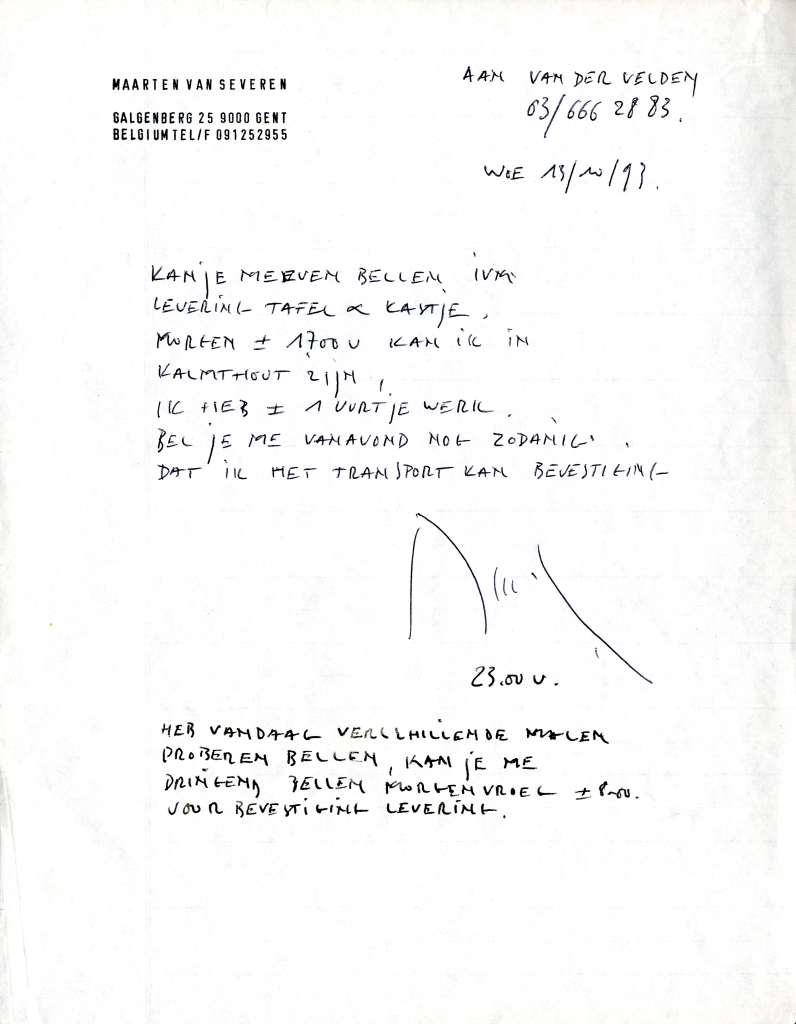 MAARTEN VAN SEVEREN
GALGENBERG 25 9000 GENT
BELGIUM TEL/F 091252955
AAN VAN DER VELDEN
03/666 28 83.
WOE 13/10/93.
KAN JE ME EVEN BELLEN IVM
LEVERING TAFEL & KASTJE.
MORGEN ± 1700 U KAN IK IN
KALMTHOUT ZIJN,
IK HEB ± 1 UURTJE WERK.
BEL JE ME VANAVOND NOG ZODANIG.
DAT IK HET TRANSPORT KAN BEVESTIGING
23.00 U.
HEB VANDAAG VERSCHILLENDE MALEN
PROBEREN BELLEN, KAN JE ME
DRINGEND BELLEN MORGENVROEG ± 8.00.
VOOR BEVESTIGING LEVERING.